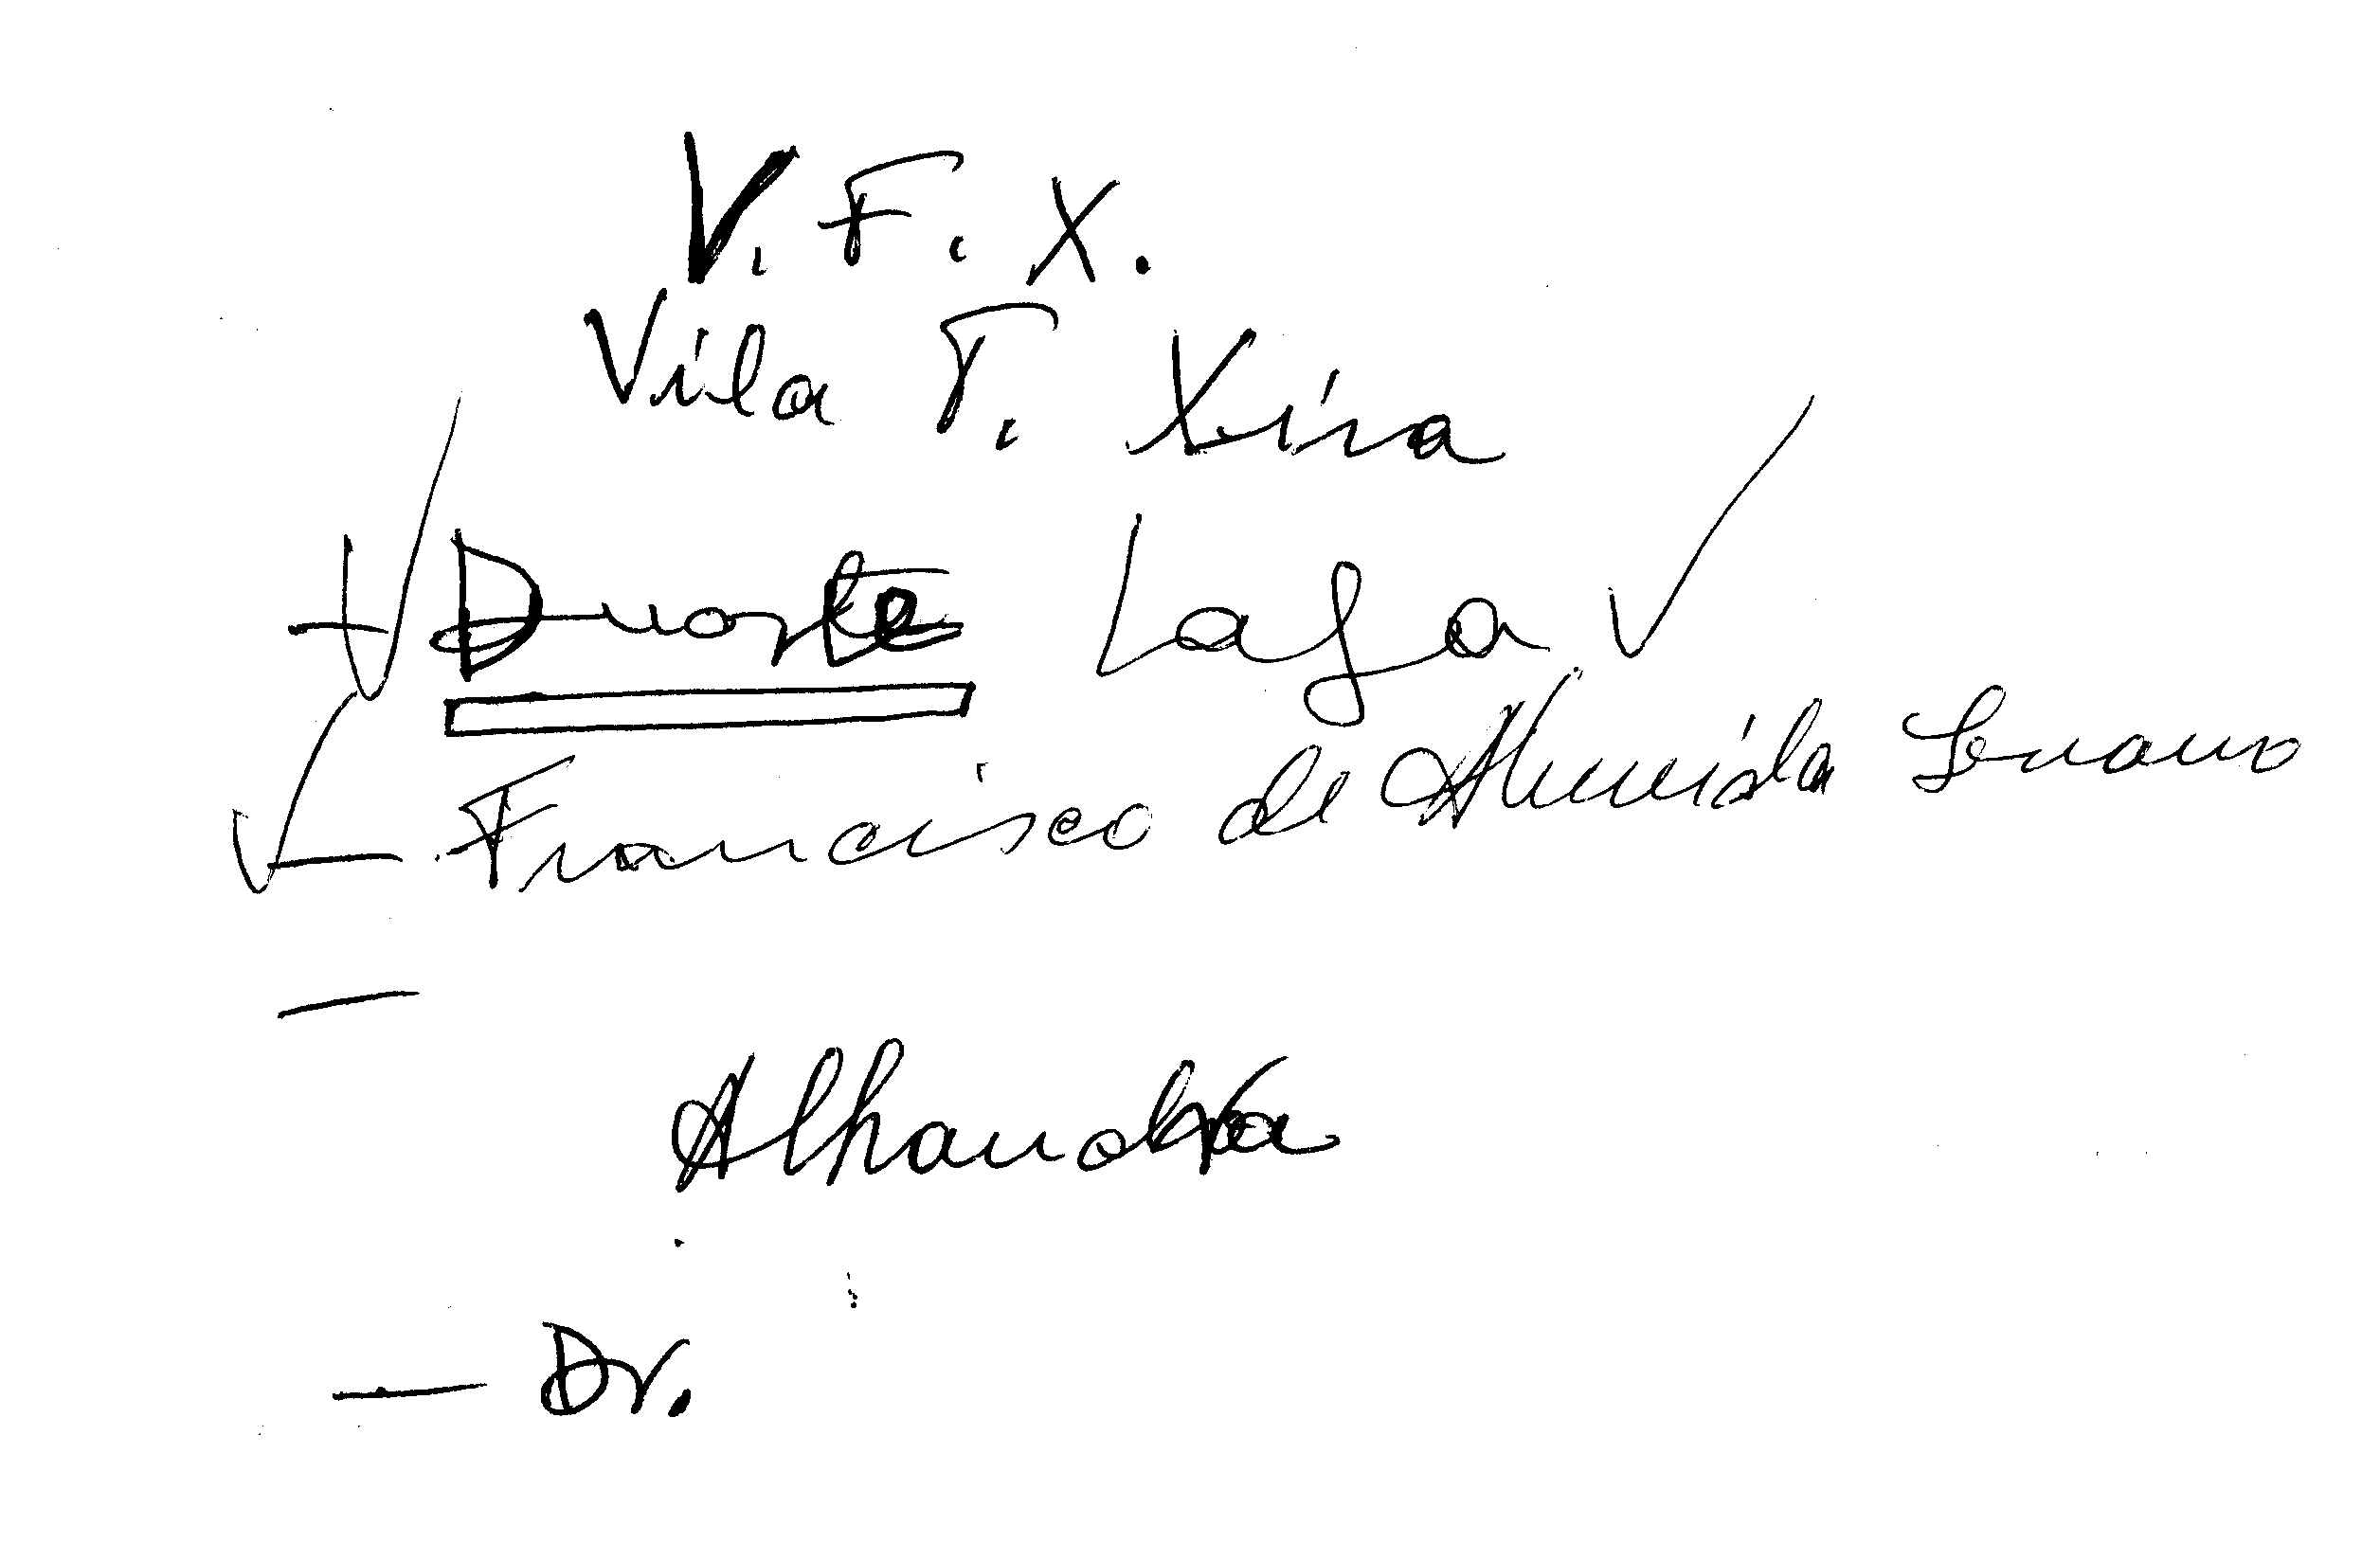 V. F. X.
Vila F. Xira
- Duarte Lafa
- Francisco de Almeida Serrano
-
Alhandra
- Dr.